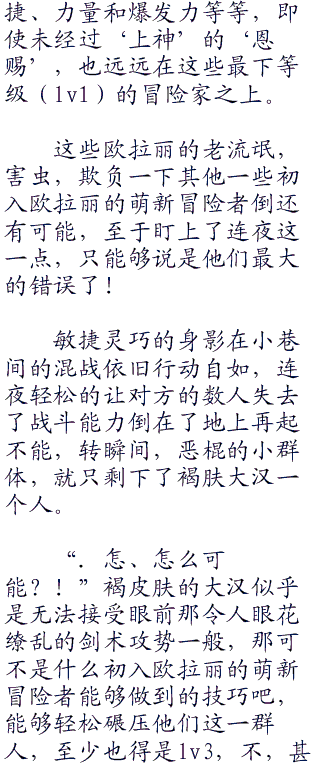 捷、力量和爆发力等等，即
使未经过‘上神’的‘恩
赐’，也远远在这些最下等
级（lv1）的冒险家之上。
这些欧拉丽的老流氓，
害虫，欺负一下其他一些初
入欧拉丽的萌新冒险者倒还
有可能，至于盯上了连夜这
一点，只能够说是他们最大
的错误了！
敏捷灵巧的身影在小巷
间的混战依旧行动自如，连
夜轻松的让对方的数人失去
了战斗能力倒在了地上再起
不能，转瞬间，恶棍的小群
体，就只剩下了褐肤大汉一
个人。
“．怎、怎么可
能？！”褐皮肤的大汉似乎
是无法接受眼前那令人眼花
缭乱的剑术攻势一般，那可
不是什么初入欧拉丽的萌新
冒险者能够做到的技巧吧，
能够轻松碾压他们这一群
人，至少也得是lv3，不，甚